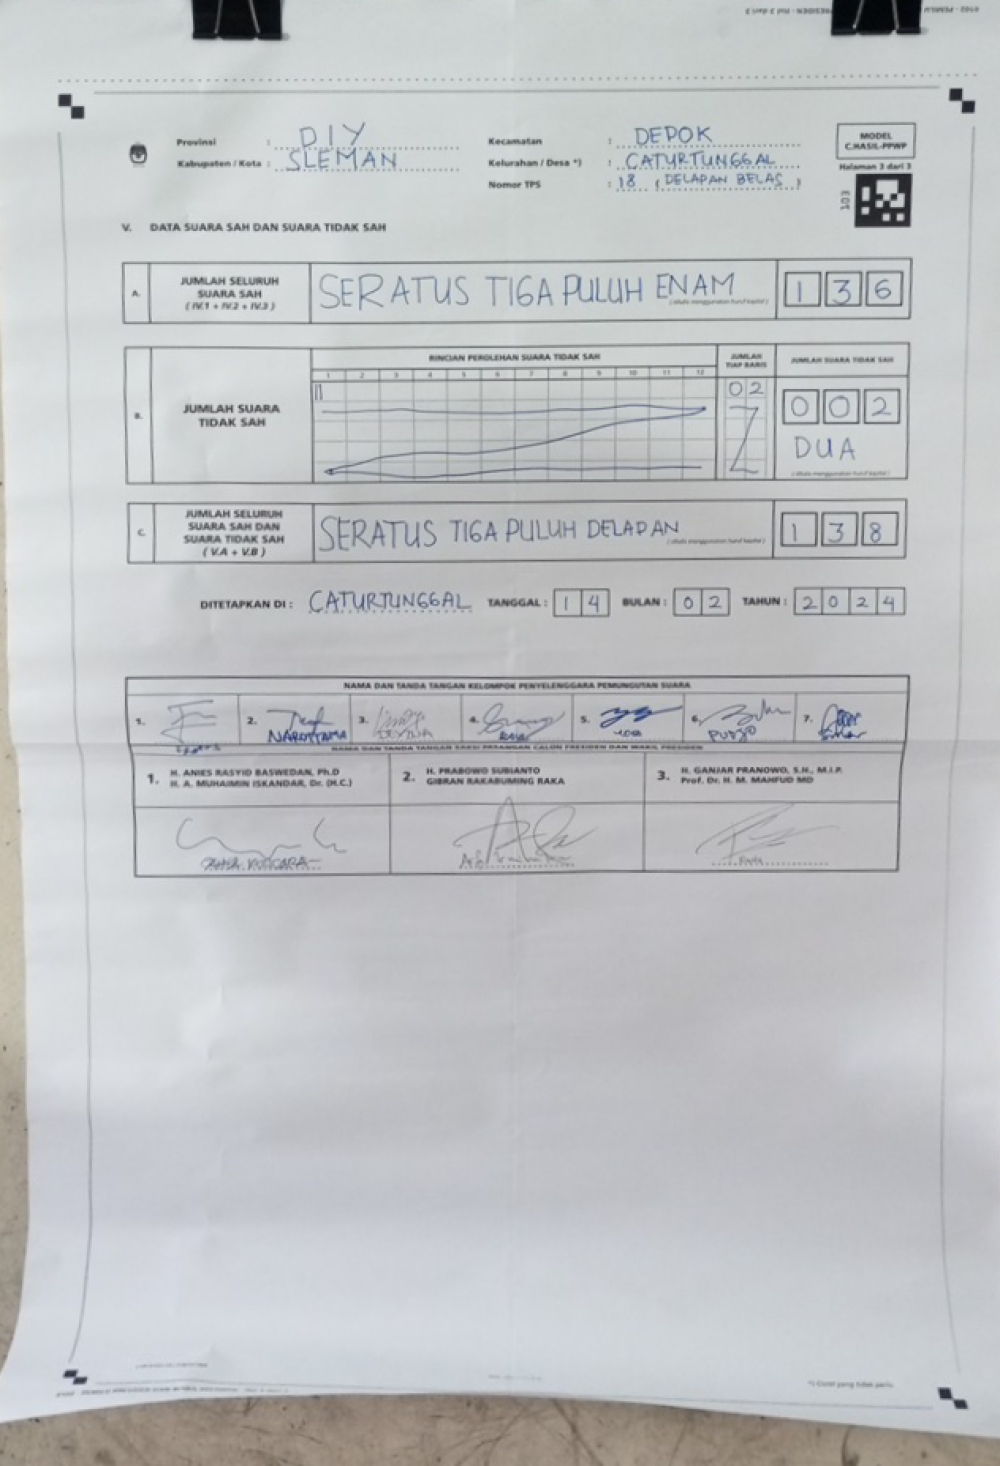 Provinsi : DIY
Kabupaten / Kota : SLEMAN
Kecamatan : DEPOK
Kelurahan / Desa *) : CATURTUNGGAL
Nomor TPS : 18 ( DELAPAN BELAS )
MODEL
C.HASIL-PPWP
Halaman 3 dari 3
103
V. DATA SUARA SAH DAN SUARA TIDAK SAH
A. JUMLAH SELURUH
SUARA SAH
( IV.1 + IV.2 + IV.3 )
SERATUS TIGA PULUH ENAM
(ditulis menggunakan huruf kapital)
1 3 6
B. JUMLAH SUARA
TIDAK SAH
RINCIAN PEROLEHAN SUARA TIDAK SAH
1 2 3 4 5 6 7 8 9 10 11 12
JUMLAH
TIAP BARIS
02
JUMLAH SUARA TIDAK SAH
0 0 2
DUA
(ditulis menggunakan huruf kapital)
C. JUMLAH SELURUH
SUARA SAH DAN
SUARA TIDAK SAH
( V.A + V.B )
SERATUS TIGA PULUH DELAPAN
(ditulis menggunakan huruf kapital)
1 3 8
DITETAPKAN DI : CATURTUNGGAL TANGGAL : 1 4 BULAN : 0 2 TAHUN : 2 0 2 4
NAMA DAN TANDA TANGAN KELOMPOK PENYELENGGARA PEMUNGUTAN SUARA
1. 2. 3. 4. 5. 6. 7.
NAROTTAMA
PUDJO
NAMA DAN TANDA TANGAN SAKSI PASANGAN CALON PRESIDEN DAN WAKIL PRESIDEN
1. H. ANIES RASYID BASWEDAN, Ph.D
H. A. MUHAIMIN ISKANDAR, Dr. (H.C.)
2. H. PRABOWO SUBIANTO
GIBRAN RAKABUMING RAKA
3. H. GANJAR PRANOWO, S.H., M.I.P.
Prof. Dr. H. M. MAHFUD MD
*) Coret yang tidak perlu